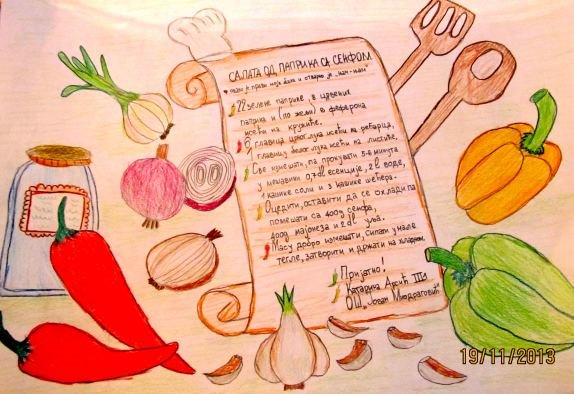 САЛАТА ОД ПАПРИКА СА СЕНФОМ
22 зелене паприке, 8 црвених
паприка и (по жељи) 8 феферона
исећи на кружиће.
6 главица црног лука исећи на ребарца,
1 главицу белог лука исећи на листиће.
Све измешати, па прокувати 5-6 минута
у мешавини есенције, 2 l воде,
1 кашике соли и 3 кашике шећера.
Оцедити, оставити да се охлади па
помешати са 400g сенфа,
400g мајонеза и 2 dl уља.
Масу добро измешати, сипати у мале
тегле, затворити и држати на хладном.
Пријатно!
Катарина Арсић III
ОШ „Јован Миодраговић“
19/11/2013